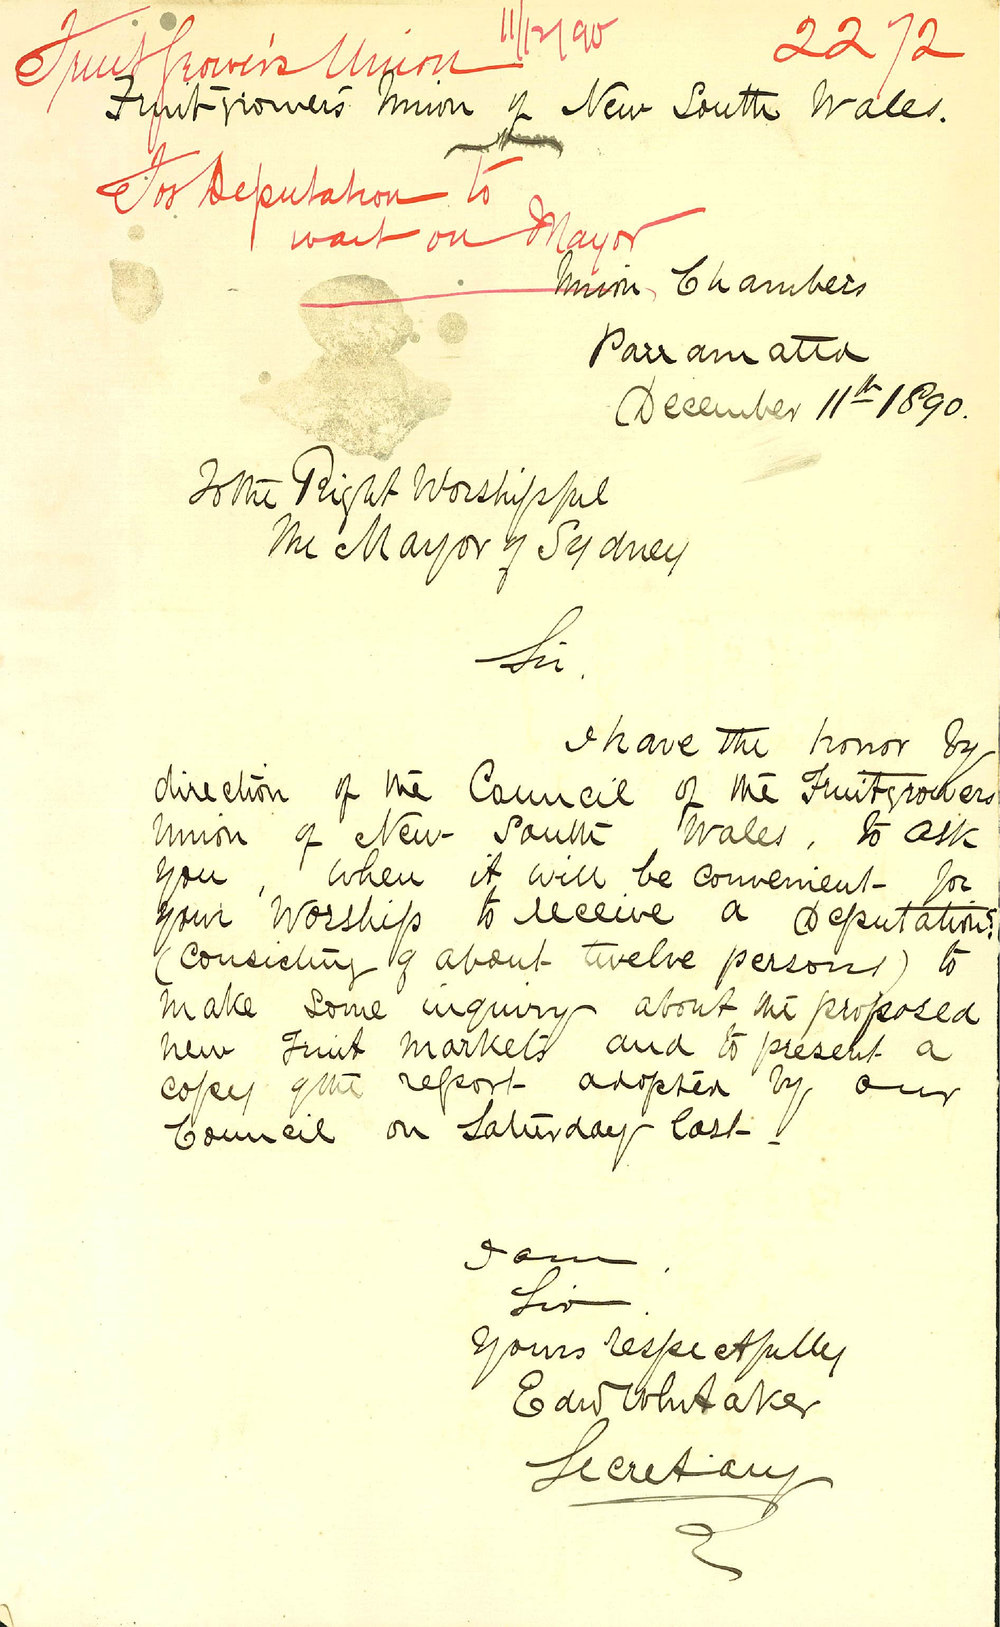 11/12/90
2272
Fruit Grower's Union
Fruitgrowers Union of New South Wales.
For Deputation to
wait on Mayor
Union Chambers
Parramatta
December 11th 1890.
To the Right Worshipful
The Mayor of Sydney
Sir.
I have the honor by
direction of the Council of the Fruitgrowers
Union of New South Wales, to ask
you, when it will be convenient for
your Worship to receive a Deputation
(consisting of about twelve persons) to
make some inquiry about the proposed
new Fruit Markets and to present a
copy of the report adopted by our
Council on Saturday last.
I am
Sir
Yours respectfully
Edwd Whitaker
Secretary